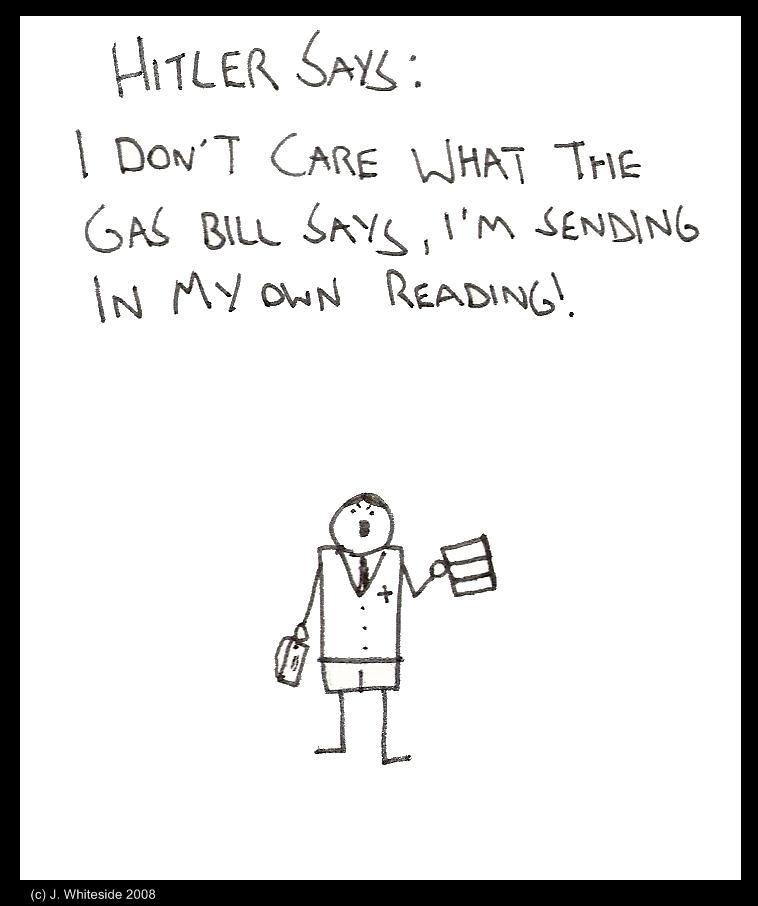 HITLER SAYS:
I DON'T CARE WHAT THE
GAS BILL SAYS, I'M SENDING
IN MY OWN READING!
(c) J. Whiteside 2008